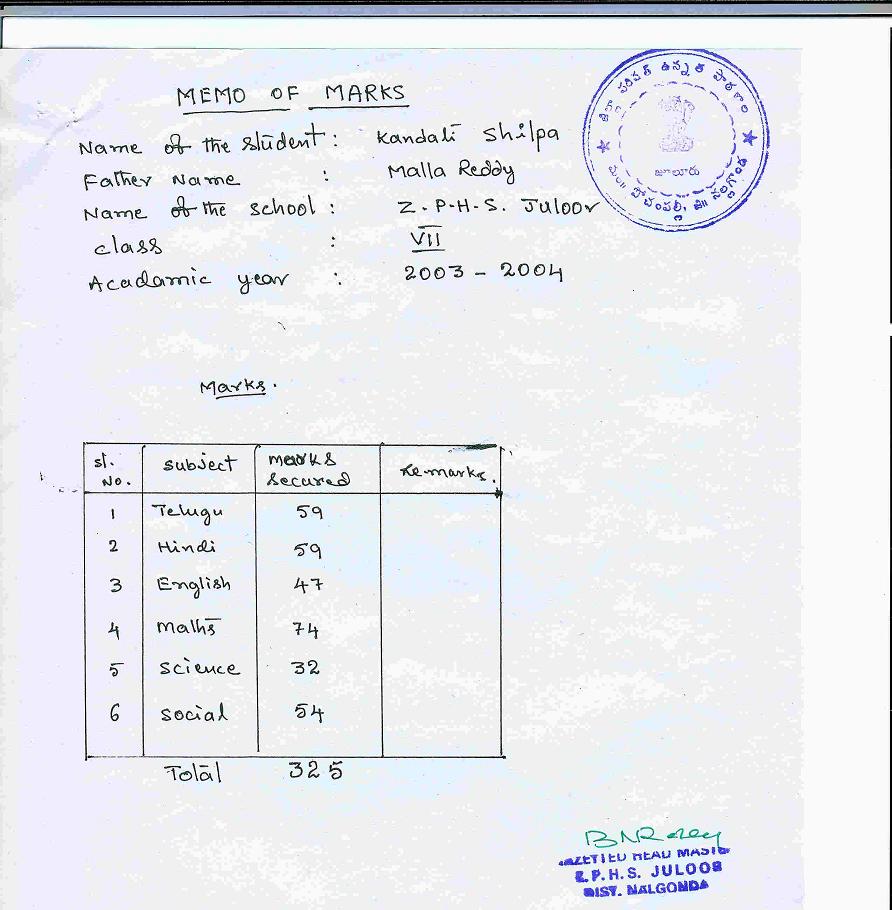 MEMO OF MARKS
Name of the student : Kandati Shilpa
Father Name : Malla Reddy
Name of the school : Z.P.H.S. Juloor
class : VII
Acadamic year : 2003 - 2004
జిల్లా పరిషత్ ఉన్నత పాఠశాల
జూలూరు
మం॥ పోచంపల్లి, జి॥ నల్లగొండ
Marks.
sl. No. subject marks secured Remarks.
1 Telugu 59
2 Hindi 59
3 English 47
4 maths 74
5 science 32
6 social 54
Total 325
HEAD
Z.P.H.S. JULOOR
DIST. NALGONDA